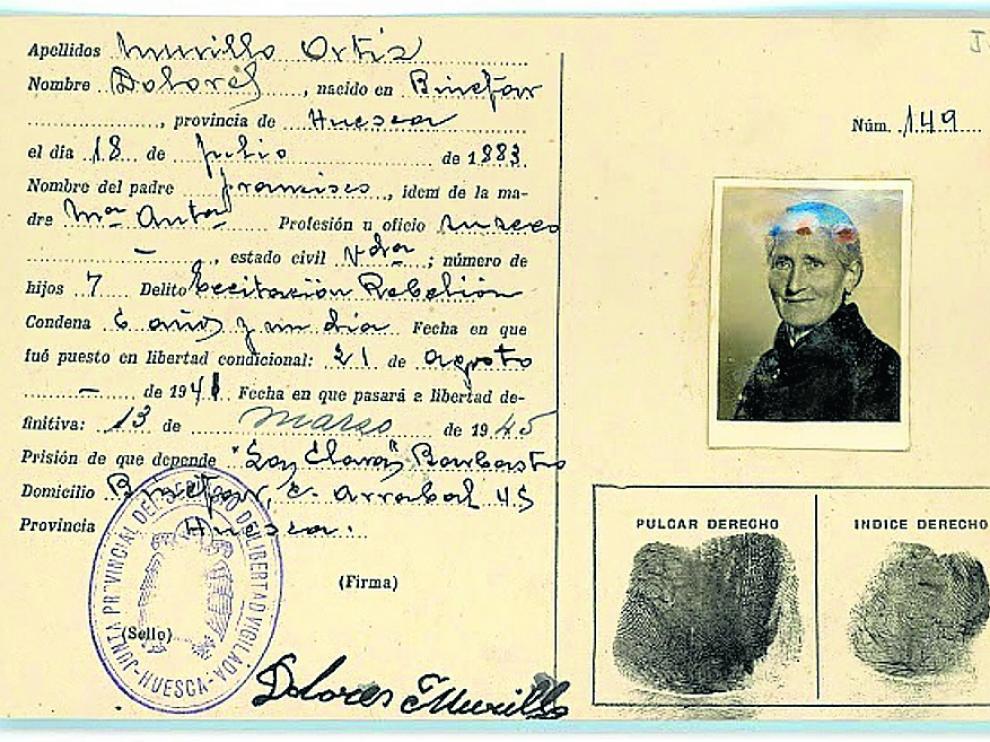 Apellidos Murillo Ortiz
Nombre Dolores, nacido en Binefar
, provincia de Huesca
el día 18 de Julio de 1883
Nombre del padre francisco, idem de la ma-
dre Mª Antª Profesión u oficio su sexo
—, estado civil Vda; número de
hijos 7 Delito Excitación Rebelión
Condena 6 años y un dia Fecha en que
fué puesto en libertad condicional: 21 de agosto
— de 1941 Fecha en que pasará a libertad de-
finitiva: 13 de marso de 1945
Prisión de que depende "Las Claras" Barbastro
Domicilio Binefar, c. Arrabal 45
Provincia Huesca.
(Firma)
(Sello)
JUNTA PROVINCIAL DEL SERVICIO DE LIBERTAD VIGILADA
-HUESCA-
Dolores Murillo
Núm. 149
PULGAR DERECHO
INDICE DERECHO